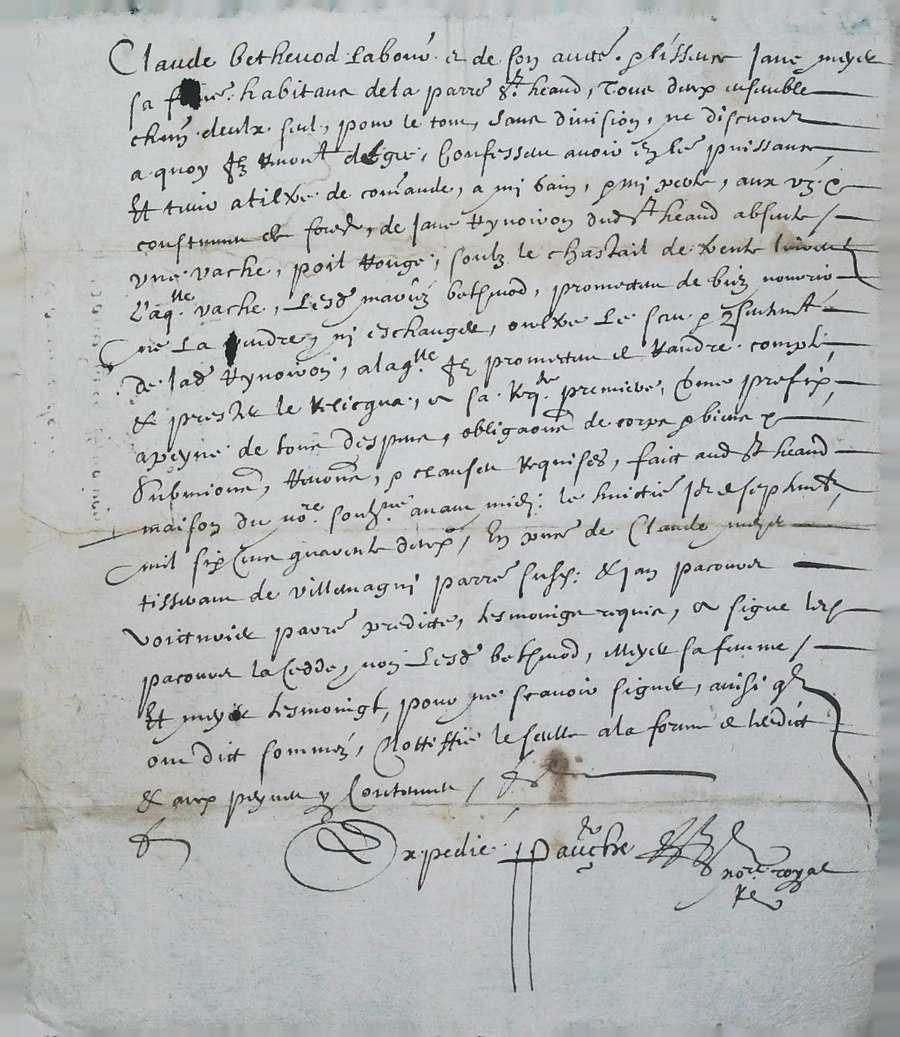 Claude bethenod Labour et de son aucté. p lissence Jane meyer
sa feme. habitans de la parre St. heand, Tous deux ensemble
chun deulx seul, pour le tout, sans division, ne discution
a quoy Ilz de gre, Confessent avoir en leur puissance,
Et tenir a tiltre de comande, a mi gain, p mi perte, aux uz &
coustumes de forest, de Jane Rynoiron dud St heand absente /
une vache, poil Rouge, soulz le chastail de trente livres
Laqlle. vache, Lesd mariez bethenod, promettent de bien nourir
ne La vendre, ny eschanger, oultre Le sceu p
de lad Rynoiron, alaqlle Ilz promettent et Randre compte
& prester le Relicqua, a sa Reqte premiere, come prefix,
a peyne de tous despens, obligaons de corps p biens &
Submions, Renons, p clauses Requises, faict aud St heand
maison du nore. soubzne avant midi: le huictie Jor de septembre,
mil six cens quarente deux, En pnce de Claude meyer
tissurant de villemagni parre susd: & Jan pacouret
voicturier parre preditte, tesmoings requis, a signe led
pacouret La cedde, non Lesd bethenod, meyer sa femme /
Et meyer tesmoingt, pour ne scavoir signer, ainsi qlz
ont dict sommez, Nottiffie le seelle a la forme de ledict
& aux peynes y Contenues /
Expedié. Pauche
nore. royal